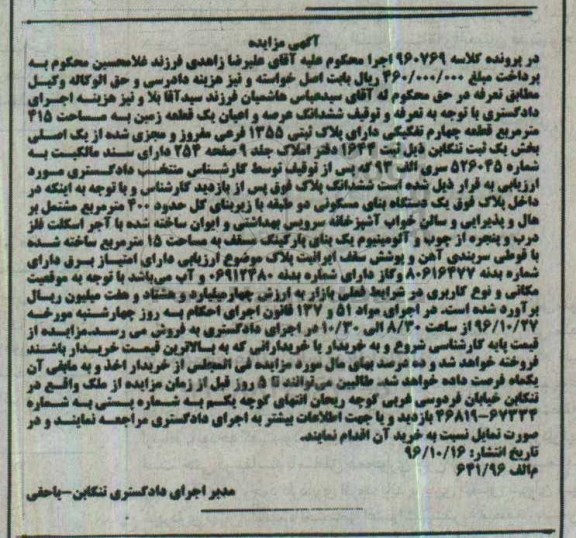 آگهی مزایده
در پرونده کلاسه ۹۶۰۷۶۹ اجرا محکوم علیه آقای علیرضا زاهدی فرزند غلامحسین محکوم به
پرداخت مبلغ ۴۶۰/۰۰۰/۰۰۰ ریال بابت اصل خواسته و نیز هزینه دادرسی و حق الوکاله وکیل
مطابق تعرفه در حق محکوم له آقای سیدعباس هاشمیان فرزند سیدآقا بلا و نیز هزینه اجرای
دادگستری با توجه به تعرفه و توقیف ششدانگ عرصه و اعیان یک قطعه زمین به مساحت ۴۱۵
مترمربع قطعه چهارم تفکیکی دارای پلاک ثبتی ۱۳۵۵ فرعی مفروز و مجزی شده از یک اصلی
بخش یک ثبت تنکابن ذیل ثبت ۱۶۴۴ دفتر املاک جلد ۹ صفحه ۲۵۴ دارای سند مالکیت به
شماره ۵۲۶۰۴۵ سری الف ۹۳ که پس از توقیف توسط کارشناس منتخب دادگستری مورد
ارزیابی به قرار ذیل شده است ششدانگ پلاک فوق پس از بازدید کارشناس و با توجه به اینکه در
داخل پلاک فوق یک دستگاه بنای مسکونی دو طبقه با زیربنای کل حدود ۴۰۰ مترمربع مشتمل بر
هال و پذیرایی و سالن خواب آشپزخانه سرویس بهداشتی و ایوان ساخته شده با آجر اسکلت فلز
درب و پنجره از چوب و آلومینیوم یک بنای پارکینگ مسقف به مساحت ۱۵ مترمربع ساخته شده
با قوطی سربندی آهن و پوشش سقف ایرانیت پلاک موضوع ارزیابی دارای امتیاز برق دارای
شماره بدنه ۸۰۶۱۶۴۷۷ وگاز دارای شماره بدنه ۰۶۹۱۲۴۸۰ و آب می‌باشد با توجه به موقعیت
مکانی و نوع کاربری در شرایط فعلی بازار به ارزش چهارمیلیارد و هشتاد و هفت میلیون ریال
برآورد شده است. در اجرای مواد ۵۱ و ۱۳۷ قانون اجرای احکام به روز چهارشنبه مورخه
۹۶/۱۰/۲۷ از ساعت ۸/۳۰ الی ۱۰/۳۰ در اجرای دادگستری به فروش می رسد.مزایده از
قیمت پایه کارشناسی شروع و به خریدار یا خریدارانی که به بالاترین قیمت خریدار باشند
فروخته خواهد شد و ده درصد بهای مال مورد مزایده فی المجلس از خریدار اخذ و به مابقی آن
یکماه فرصت داده خواهد شد. طالبین می‌توانند تا ۵ روز قبل از زمان مزایده از ملک واقع در
تنکابن خیابان فردوسی غربی کوچه ریحان انتهای کوچه یکسم به شماره پستی به شماره
۴۶۸۱۹-۶۷۳۳۴ بازدید و یا جهت اطلاعات بیشتر به اجرای دادگستری مراجعه نمایند و در
صورت تمایل نسبت به خرید آن اقدام نمایند.
تاریخ انتشار: ۹۶/۱۰/۱۶
م/الف ۶۴۱/۹۶
مدیر اجرای دادگستری تنکابن-یاحقی